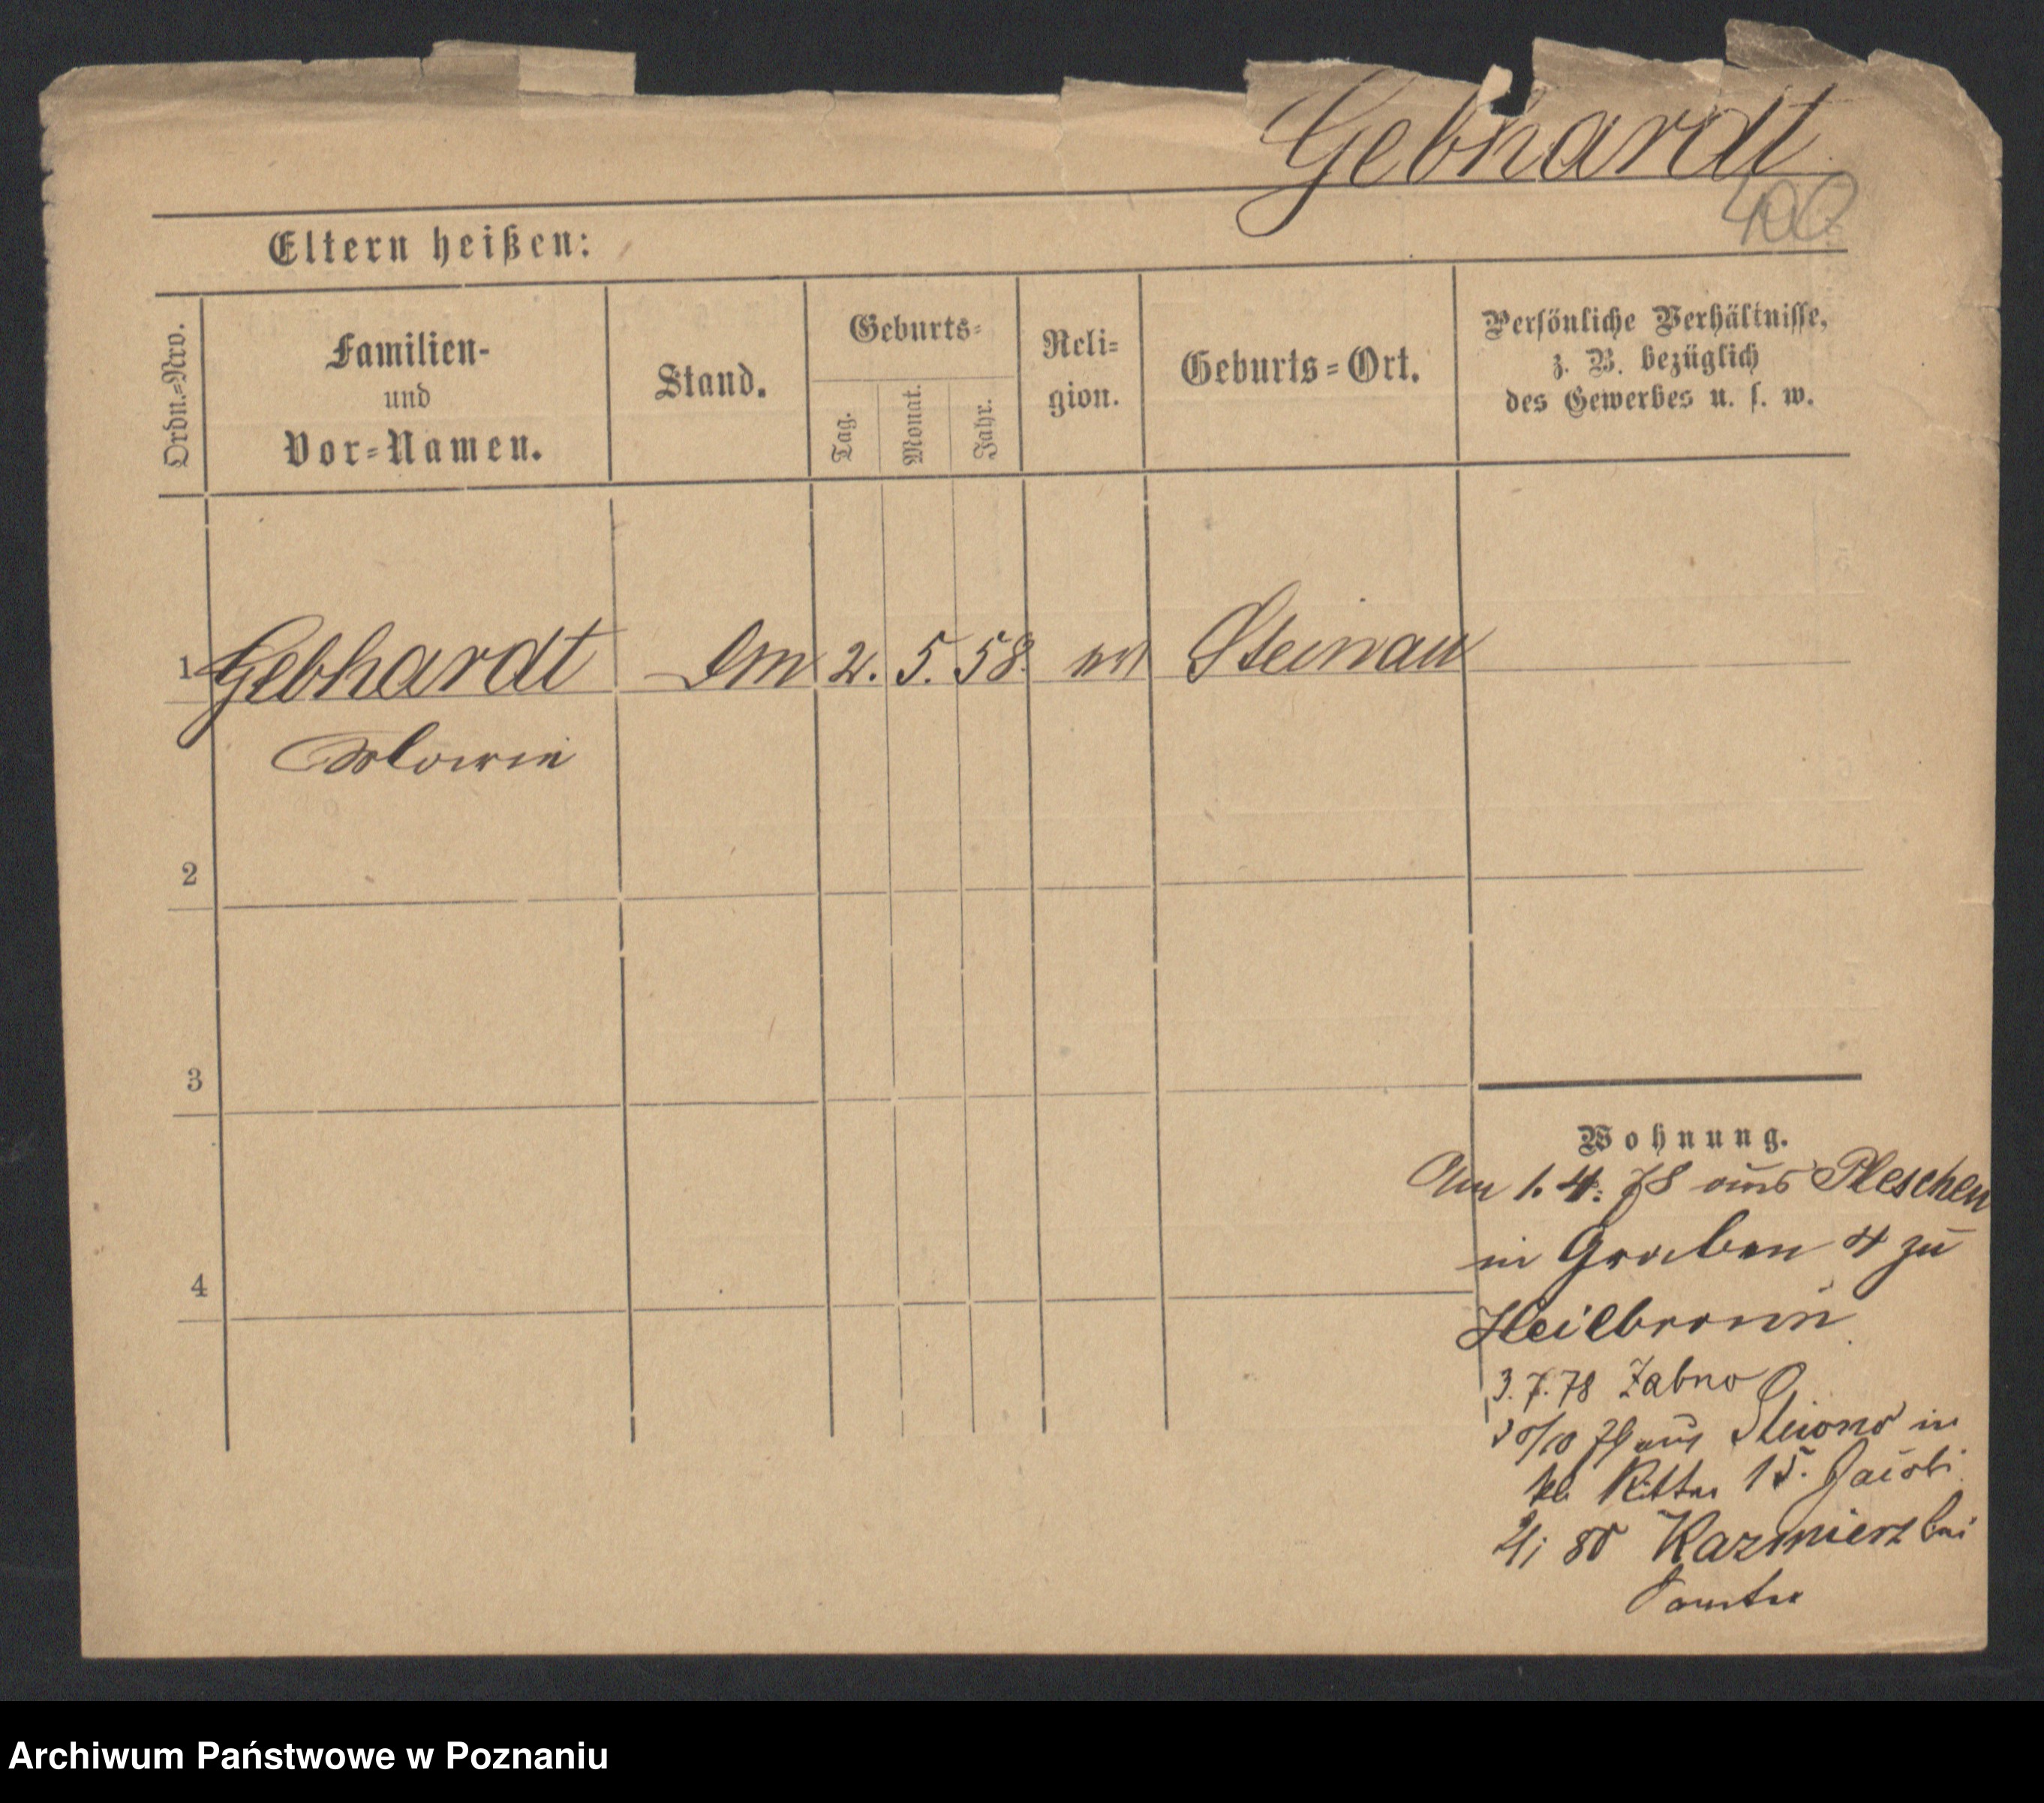 Gebhardt
400
Eltern heißen:
Ordn.=Nro.
Familien-
und
Vor=Namen.
Stand.
Geburts=
Tag.
Monat.
Jahr.
Reli=
gion.
Geburts=Ort.
Persönliche Verhältnisse,
z. B. bezüglich
des Gewerbes u. s. w.
1 Gebhardt 2. 5. 58. Steinau
2
3
4
Wohnung.
Am 1. 4. 78 aus Pleschen
in Graben 4 zu
Heilbronn
3. 7. 78 Zabno
in
Ritter 15.
80 Kazmierz bei